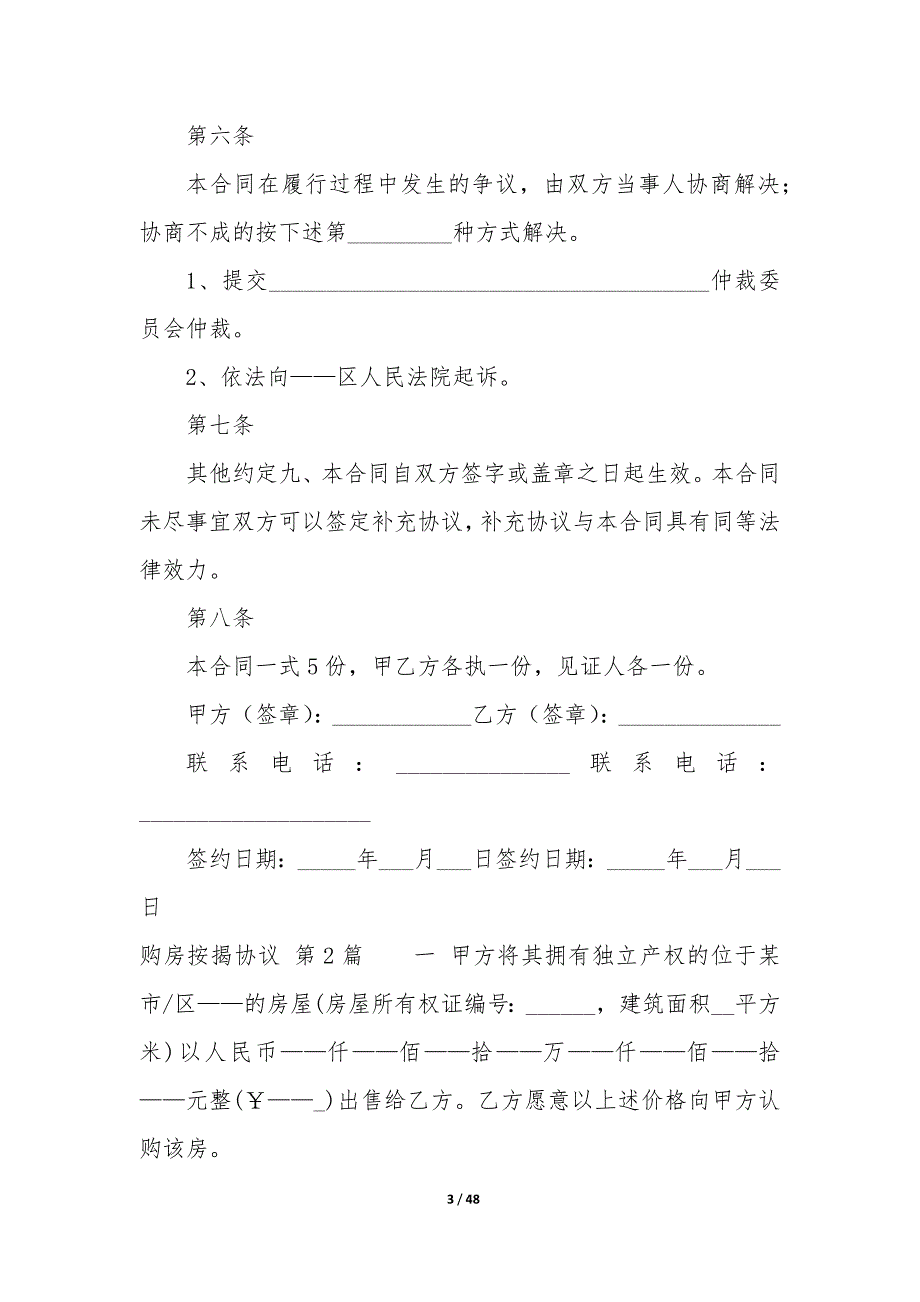 第六条
本合同在履行过程中发生的争议，由双方当事人协商解决；
协商不成的按下述第_________种方式解决。
1、提交______________________________________仲裁委
员会仲裁。
2、依法向——区人民法院起诉。
第七条
其他约定九、本合同自双方签字或盖章之日起生效。本合同
未尽事宜双方可以签定补充协议，补充协议与本合同具有同等法
律效力。
第八条
本合同一式5份，甲乙方各执一份，见证人各一份。
甲方（签章）：____________乙方（签章）：______________
联系电话：_______________联系电话：
____________________
签约日期：_____年___月___日签约日期：_____年___月___
日
购房按揭协议 第2篇　　一 甲方将其拥有独立产权的位于某
市/区——的房屋(房屋所有权证编号：______，建筑面积__平方
米)以人民币——仟——佰——拾——万——仟——佰——拾
——元整(￥——_)出售给乙方。乙方愿意以上述价格向甲方认
购该房。
3 / 48